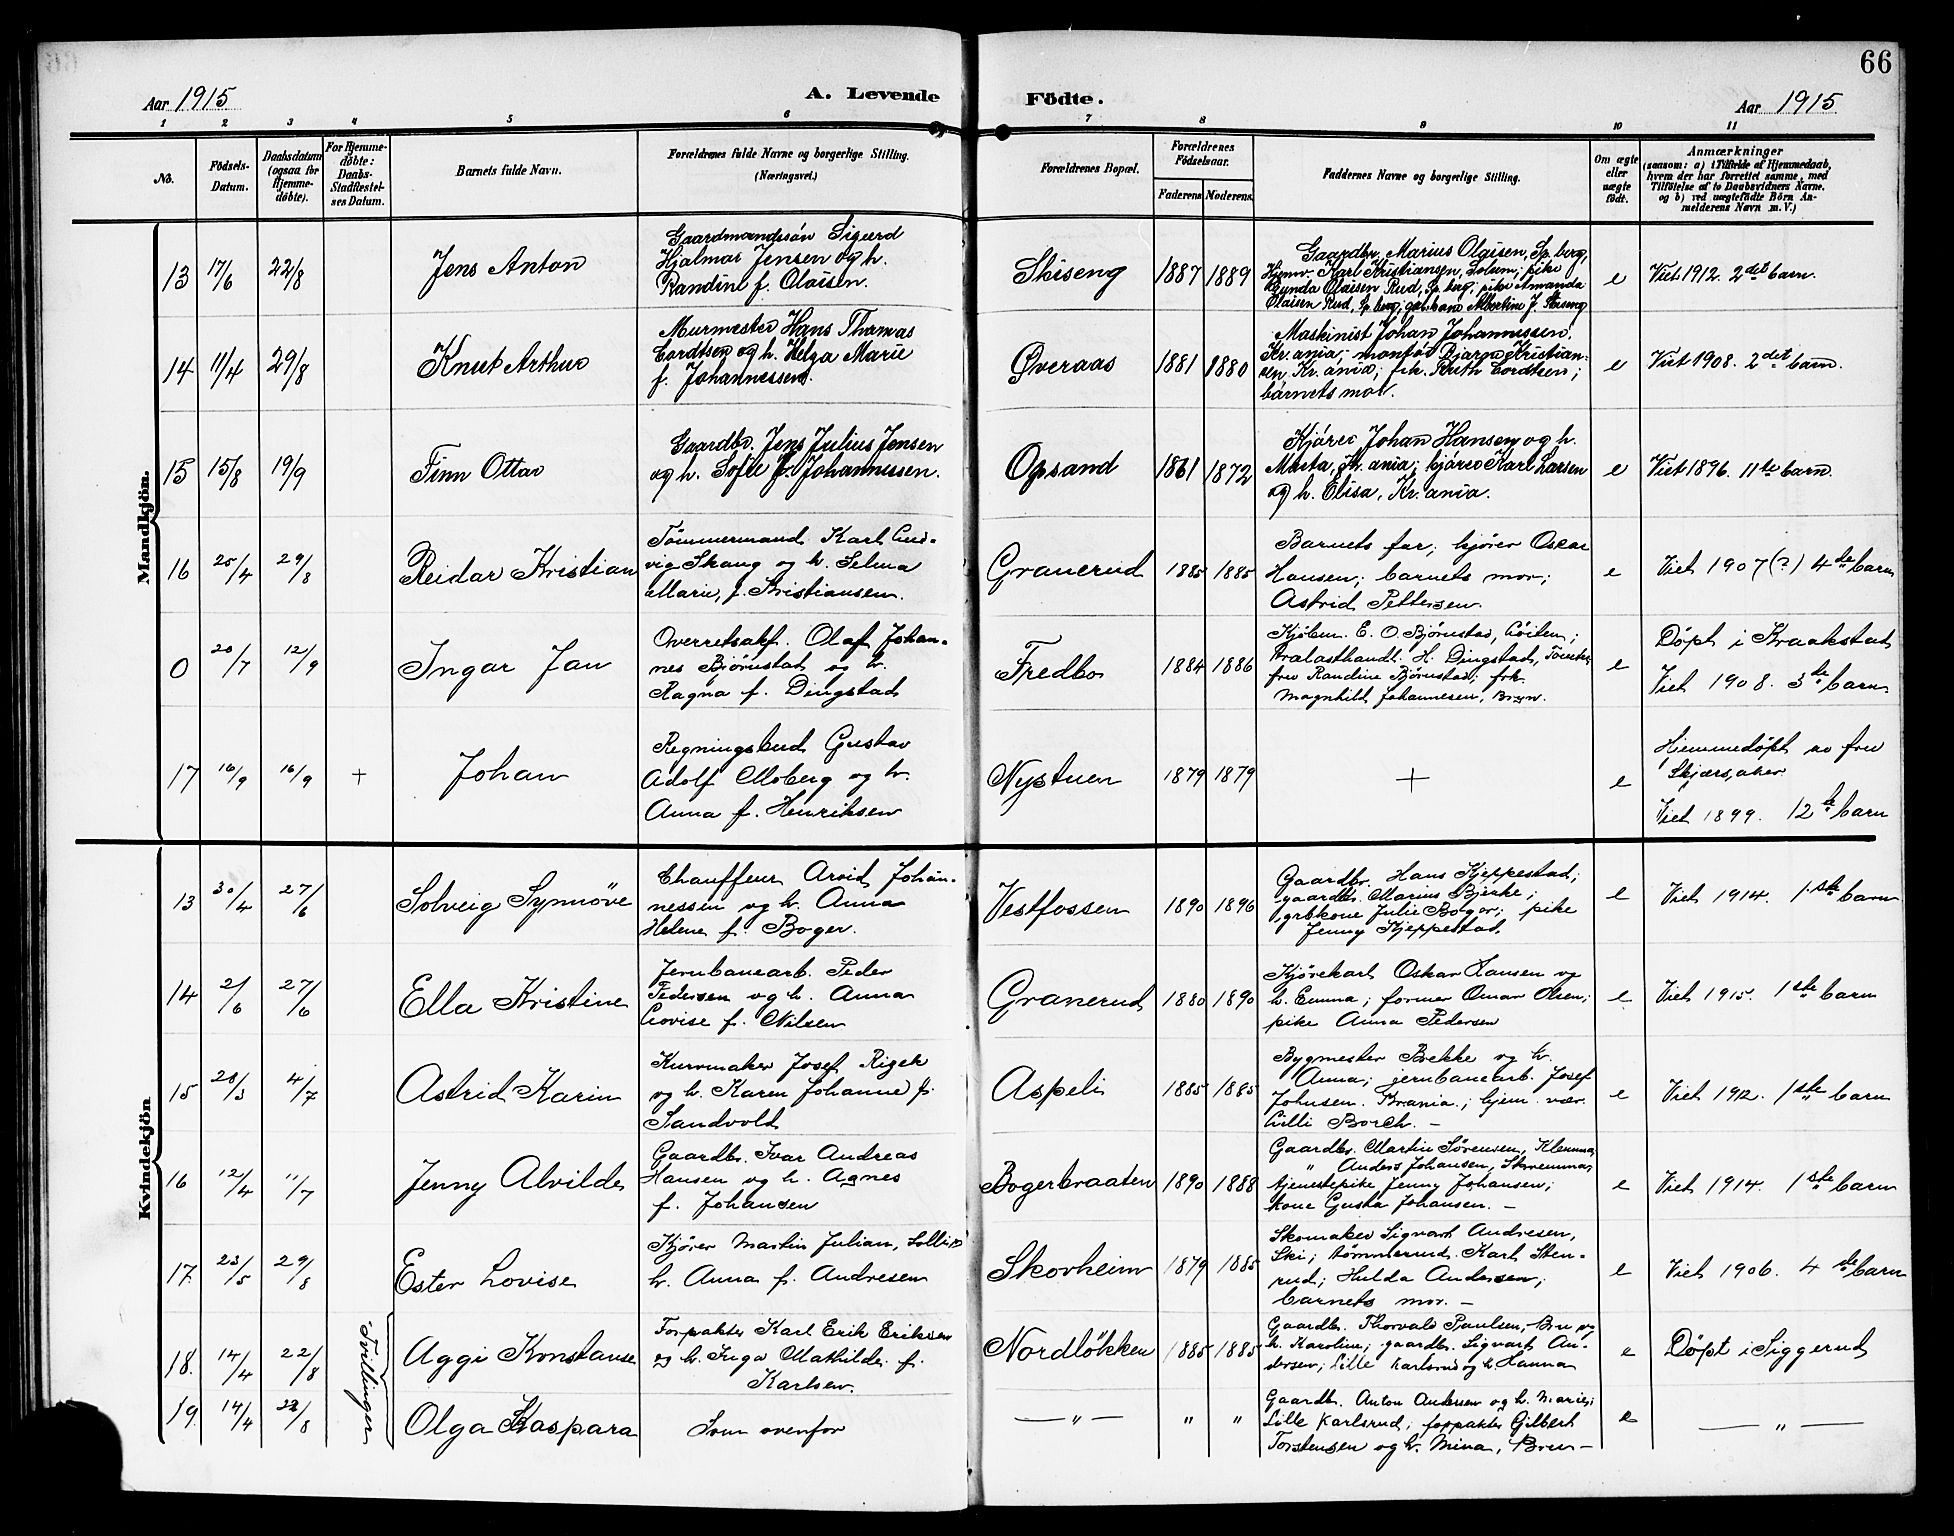 66
Aar 1915
A. Levende
Födte.
Aar 1915
1 2 3 4 5 6 7 8 9 10 11
No.
Födsels-
Datum.
Daabsdatum
(ogsaa for
Hjemme-
døbte).
For Hjemme-
døbte:
Daabs-
Stadfæstel-
ses Datum.
Barnets fulde Navn.
Forældrenes fulde Navne og borgerlige Stilling.
(Næringsvei.)
Forældrenes Bopæl.
Forældrenes
Födselsaar.
Faderens Moderens
Faddernes Navne og borgerlige Stilling.
Om ægte
eller
uægte
født.
Anmærkninger
(saasom: a) i Tilfælde af Hjemmedaab,
hvem der har forrettet samme, med
Tilföielse af to Daabsvidners Navne.
og b) ved uægtefødte Börn An-
melderens Navn m. V.)
Mandkjön.
13 17/6 22/8
Jens Anton
Gaardmandssøn Sigurd
Hjalmar Jensen og h.
Randine f. Olaisen.
Skiseng
1887 1889
Gaardbr. Marius Olaisen, Sp.berg,
Hjemv. Karl Kristiansen, Solum; pike
Gunda Olaisen Rud, Sp.berg; pike Amanda
Olaisen Rud, Sp.berg; Albertine J. Skiseng
e
Viet 1912. 2det barn.
14 11/4 29/8
Knut Arthur
Murmester Hans Thomas
Cordtsen og h. Helga Marie
f. Johannessen.
Øveraas
1881 1880
Maskinist Johan Johannessen,
Kr.ania; montør Bjarne Kristian-
sen Kr.ania; frk. Ruth Cordtsen;
barnets mor.
e
Viet 1908. 2det barn.
15 15/8 19/9
Finn Ottar
Gaardbr. Jens Julius Jensen
og h. Sofie f. Johannessen.
Opsand
1861 1872
Kjører Johan Hansen og h.
Marta, Kr.ania; kjører Karl Larsen
og h. Elisa, Kr.ania.
e
Viet 1896. 11te barn.
16 25/4 29/8
Reidar Kristian
Tømmermand Karl Lud-
vig Skaug og h. Selma
Marie, f. Kristiansen.
Granerud
1885 1885
Barnets far; kjører Oscar
Hansen; barnets mor;
Astrid Pettersen.
e
Viet 1907 (?) 4de barn
0 20/7 12/9
Ingar Jan
Overretsakf. Olaf Johan-
nes Bjørnstad og h.
Ragna f. Dingstad
Fredbo
1884 1886
Kjøbm. E. O. Bjørnstad, Løiten;
trælasthandl. H. Dingstad,
fru Randine Bjørnstad; frk.
Magnhild Johannesen, Bryn.
e
Døpt i Kraakstad
Viet 1908. 3de barn.
17 16/9 16/9 +
Johan
Regningsbud Gustav
Adolf Moberg og h.
Anna f. Henriksen
Nystuen
1879 1879
+
e
Hjemmedøpt av fru
Skjærsaker.
Viet 1899. 12te barn
Kvindekjön
13 30/4 27/6
Solveig Synnöve
Chauffeur Arvid Johan-
nessen og h. Anna
Helene f. Boger.
Vestfossen
1890 1896
Gaardbr. Hans Kjeppestad;
gaardbr. Marius Bjerke;
grbkone Julie Boger; pike
Jenny Kjeppestad.
e
Viet 1914. 1ste barn
14 2/6 27/6
Ella Kristine
Jernbanearb. Peder
Pedersen og h. Anna
Lovise f. Nilsen
Granerud
1880 1890
Kjørekarl Oskar Hansen og
h. Emma; former Omar Olsen;
pike Anna Pedersen
e
Viet 1915. 1ste barn
15 28/3 4/7
Astrid Karin
Kurvmaker Josef Rigek
og h. Karen Johanne f.
Sandvold
Aspeli
1885 1885
Bygmester Bekke og h.
Anna; jernbanearb. Josef
Johnsen. Kr.ania; hjem. vær.
Lilli Borch. —
e
Viet 1912. 1ste barn
16 12/4 11/7
Jenny Alvilde
Gaardbr. Ivar Andreas
Hansen og h. Agnes
f. Johansen
Bogerbraaten
1890 1888
Gaardbr. Martin Sørensen, Klemma,
" Anders Johansen, Skremma,
tjenestepike Jenny Johansen;
kone Gusta Johansen. —
e
Viet 1914. 1ste barn
17. 23/5 29/8
Ester Lovise
Kjører Martin Julian, Sollie
h. Anna f. Andresen
Skovheim
1879 1885
Skomaker Sigvart Andresen,
Ski; tømmermd. Karl Sten-
rud; Hulda Andersen;
barnets mor. —
e
Viet 1906. 4de barn
Tvillinger
18. 14/4 22/8
Aggi Konstanse
Forpakter Karl Erik Eriksen
og h. Inga Mathilde f.
Karlsen.
Nordløkken
1885 1885
Gaardbr. Thorvald Paulsen, Bru og
h. Karoline; gaardbr. Sigvart An-
dersen; Lille Karlsrud og h. Hanna
e
Døpt i Siggerud
19. 14/4 22/8
Olga Kaspara
Som ovenfor
— " —
" "
Gaardbr. Anton Andersen og h. Marie;
Lille Karlsrud; forpakter Gilbert
Torstensen og h. Mina, Bru —
e
— " —